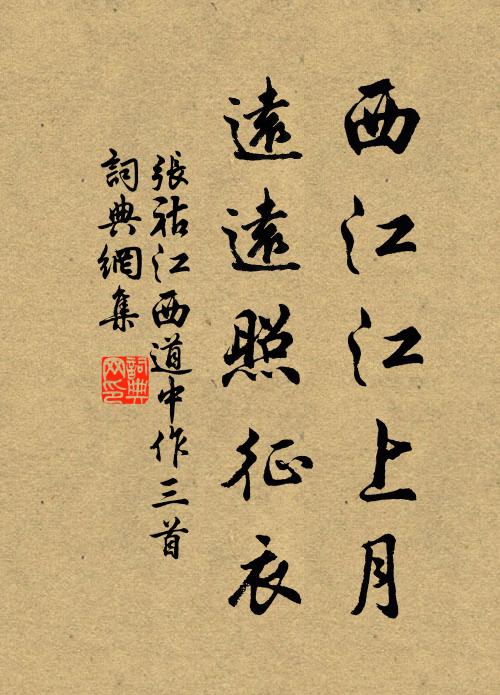 西江江上月
遠遠照征衣
張祜江西道中作三首
詞典網集
詞典網印